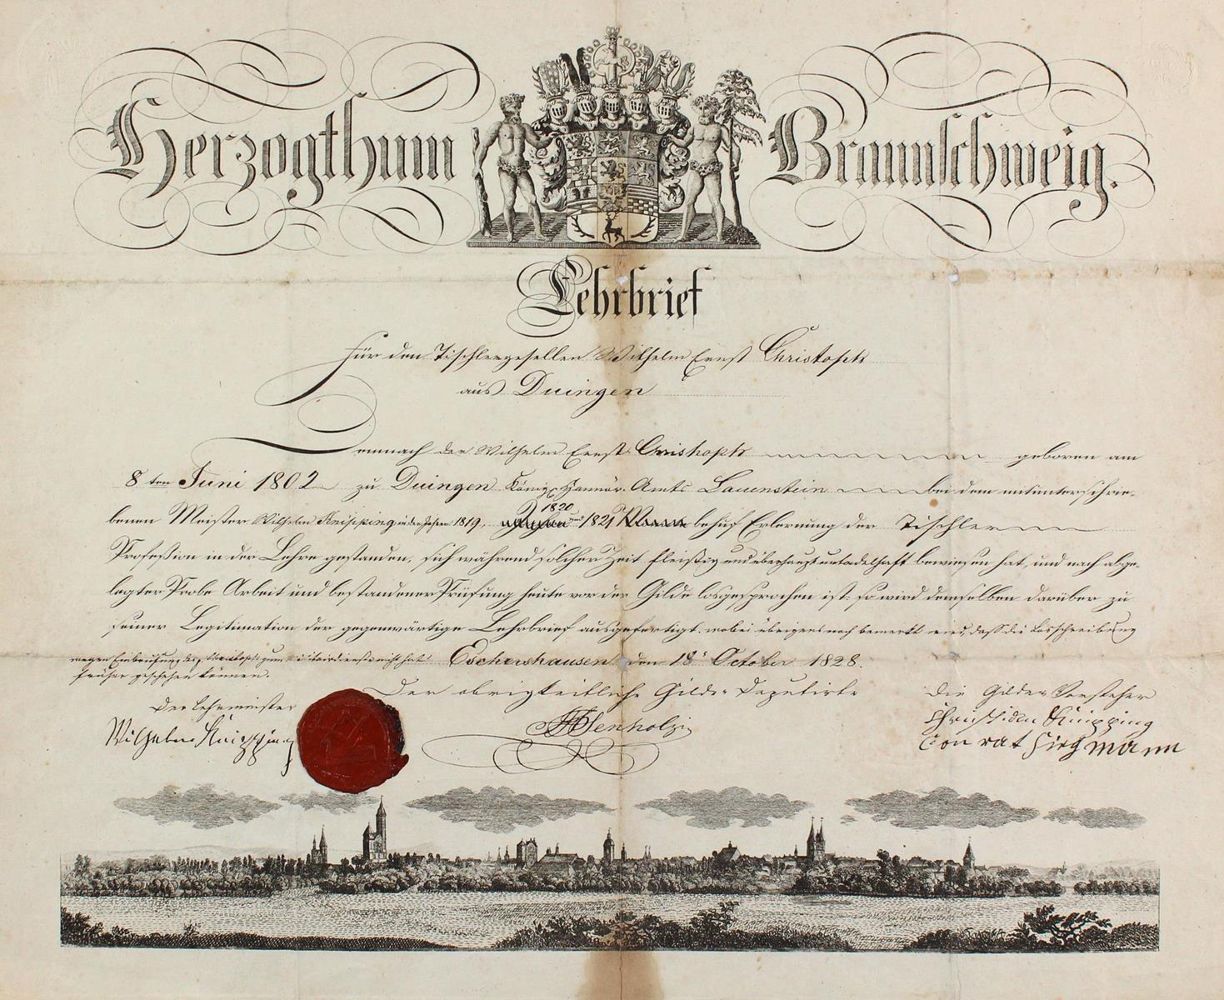 Herzogthum Braunschweig.
Lehrbrief
Für den Tischlergesellen Wilhelm Ernst Christoph
aus Duingen
Demnach der Wilhelm Ernst Christoph geboren am
8ten Juni 1802 zu Duingen Königl. Hannöv. Amts Lauenstein bei dem unterschrie-
benen Meister Wilhelm 1819 1820 1821 behuf Erlernung der Tischler
Profession in der Lehre gestanden, sich während solcher Zeit fleißig und überhaupt untadelhaft bewiesen hat, und nach abge-
legter Probe Arbeit und bestandener Prüfung heute vor der Gilde losgesprochen ist; so wird demselben darüber zu
seiner Legitimation der gegenwärtige Lehrbrief ausgefertigt, wobei übrigens noch bemerkt wird, daß die Losschreibung
wegen zum nicht hat Eschershausen den 18t October 1828.
früher geschehen können.
Der Lehrmeister
Wilhelm
Der obrigkeitliche Gilde-Deputirte
Die Gilde Vorsteher
Christian
Conrat Siegmann